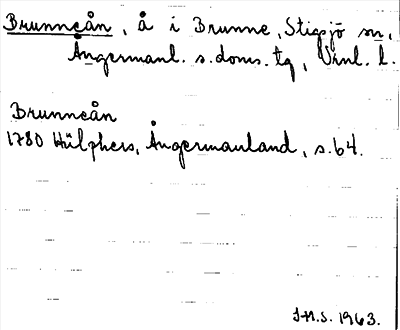 Brunneån, å i Brunne, Stigsjö sn,
Ångermanl. s. doms. tg, Vrnl. l.
Brunneån
1780 Hülphers, Ångermanland, s. 64.
I.H.S. 1963.